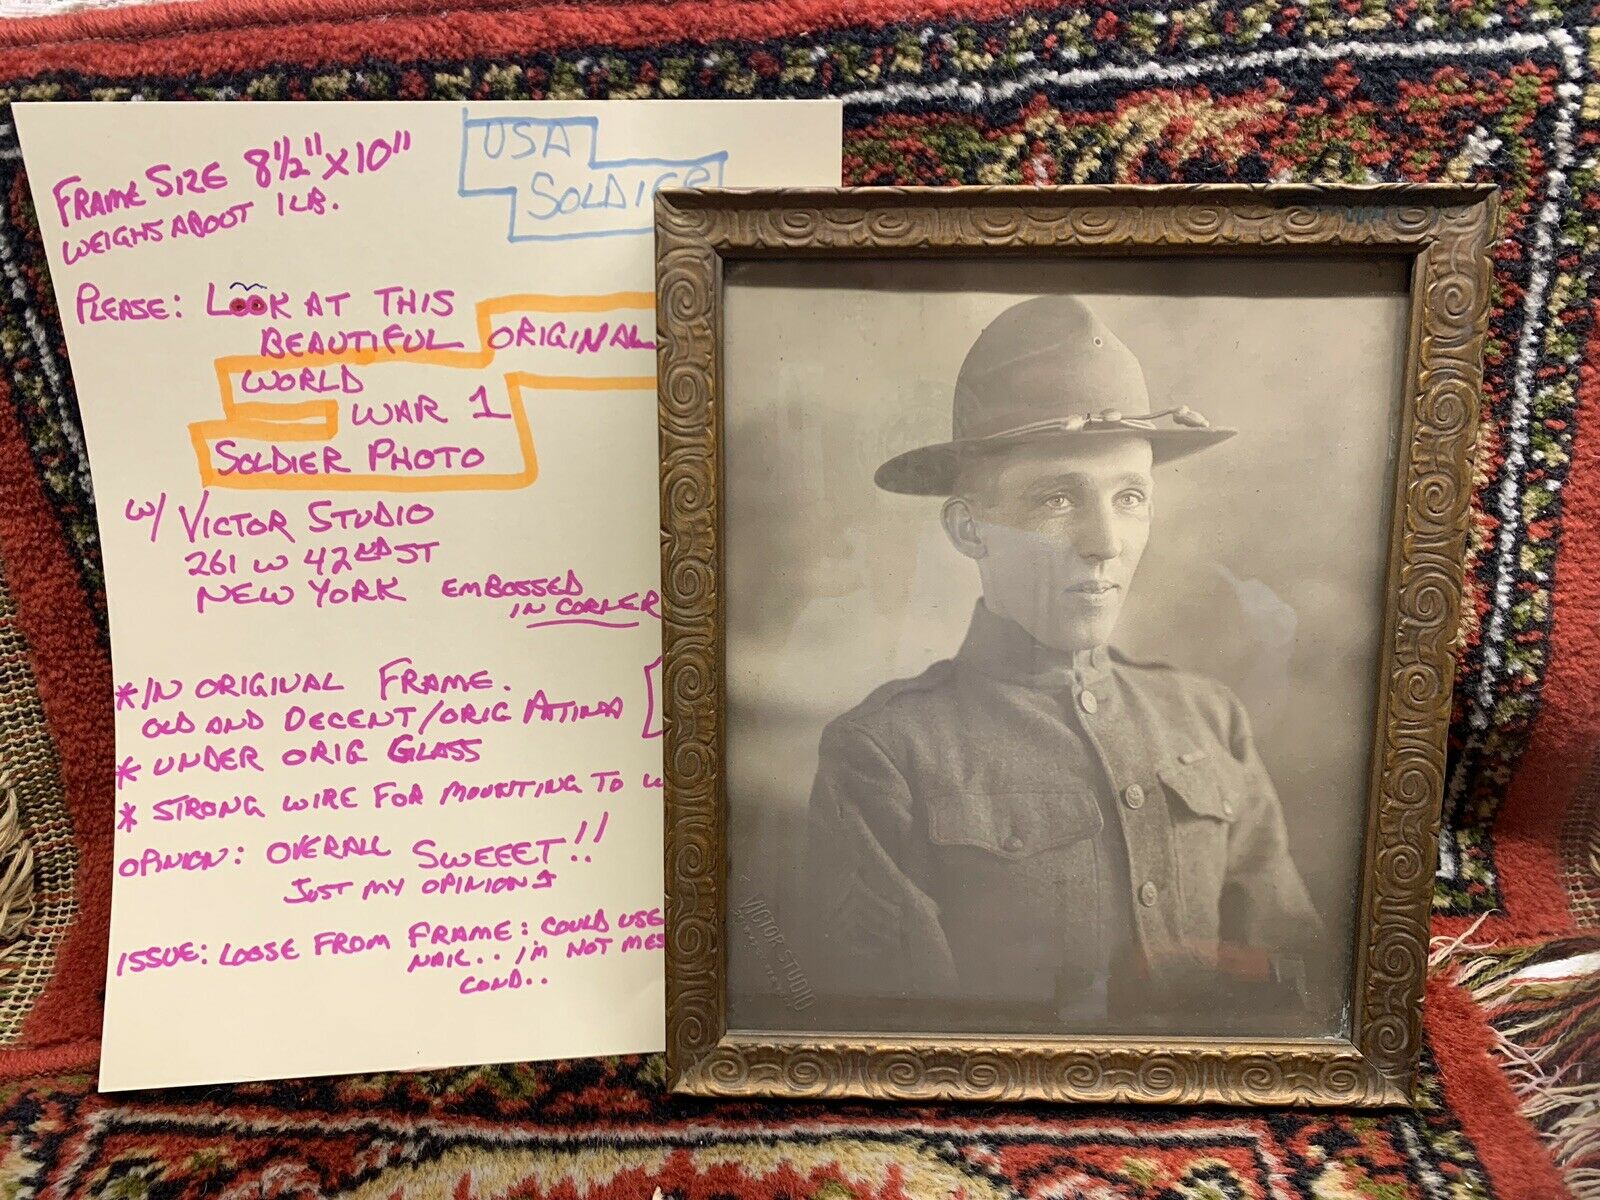 FRAME SIZE 8½" X 10"
WEIGHS ABOUT 1 LB.
USA
SOLDIER
PLEASE: LOOK AT THIS
BEAUTIFUL ORIGINAL
WORLD
WAR 1
SOLDIER PHOTO
W/ VICTOR STUDIO
261 W 42ND ST
NEW YORK EMBOSSED
IN CORNER
* IN ORIGINAL FRAME.
OLD AND DECENT/ORIG PATINA
* UNDER ORIG GLASS
* STRONG WIRE FOR MOUNTING TO W
OPINION: OVERALL SWEEET!!
JUST MY OPINION
ISSUE: LOOSE FROM FRAME: COULD USE
NAIL.. I'M NOT MES
COND..
VICTOR STUDIO